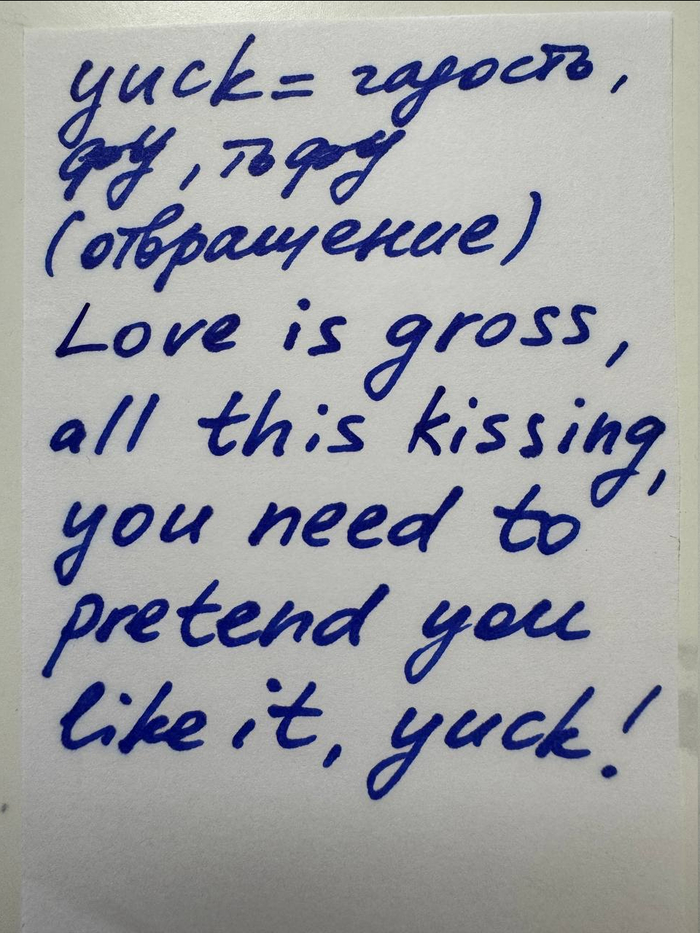 yuck = гадость,
фу, тьфу
(отвращение)
Love is gross,
all this kissing,
you need to
pretend you
like it, yuck!